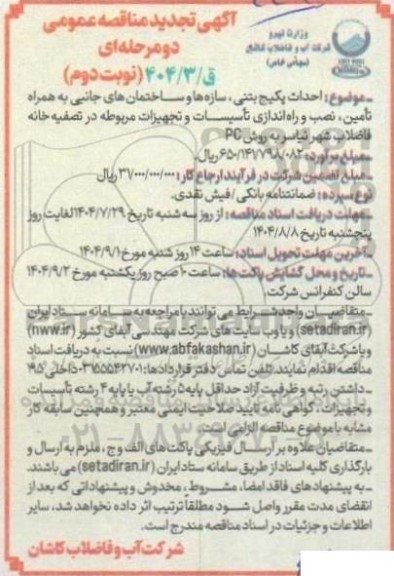 آگهی تجدید مناقصه عمومی
دو مرحله‌ای
ق/۴۰۴/۳ (نوبت دوم)
وزارت نیرو
شرکت آب و فاضلاب کاشان
(سهامی خاص)
ـ موضوع: احداث پکیج بتنی، سازه‌ها و ساختمان های جانبی به همراه
تأمین، نصب و راه‌اندازی تأسیسات و تجهیزات مربوطه در تصفیه خانه
فاضلاب شهر نیاسر به روش PC
ـ مبلغ برآورد: ۶۵۰/۱۴۱/۷۹۸/۰۸۲ ریال.
ـ مبلغ تضمین شرکت در فرآیند ارجاع کار: ۳۱/۰۰۰/۰۰۰/۰۰۰ ریال
نوع سپرده: ضمانتنامه بانکی/فیش نقدی.
ـ مهلت دریافت اسناد مناقصه: از روز سه شنبه تاریخ ۱۴۰۴/۷/۲۹ لغایت روز
پنجشنبه تاریخ ۱۴۰۴/۸/۸
ـ آخرین مهلت تحویل اسناد: ساعت ۱۴ روز شنبه مورخ ۱۴۰۴/۹/۱
ـ تاریخ و محل گشایش پاکت ها: ساعت ۱۰ صبح روز یکشنبه مورخ ۱۴۰۴/۹/۲
سالن کنفرانس شرکت.
ـ متقاضیان واجد شرایط می توانند با مراجعه به سامانه ستاد ایران
(setadiran.ir) و یا وب سایت های شرکت مهندسی آبفای کشور (nww.ir)
و یا شرکت آبفای کاشان (www.abfakashan.ir) نسبت به دریافت اسناد
مناقصه اقدام نمایند. تلفن تماس دفتر قراردادها: ۰۳۱۵۵۵۴۲۷۰۱ داخلی ۱۹۵
ـ داشتن رتبه و ظرفیت آزاد حداقل پایه ۵ رشته آب یا پایه ۴ رشته تأسیسات
و تجهیزات، گواهی نامه تایید صلاحیت ایمنی معتبر و همچنین سابقه کار
مشابه با موضوع مناقصه الزامی است.
ـ متقاضیان علاوه بر ارسال فیزیکی پاکت های الف و ج، ملزم به ارسال و
بارگذاری کلیه اسناد از طریق سامانه ستاد ایران (setadiran.ir) می باشند.
ـ به پیشنهادهای فاقد امضا، مشروط، مخدوش و پیشنهاداتی که بعد از
انقضای مدت مقرر واصل شود مطلقاً ترتیب اثر داده نخواهد شد، سایر
اطلاعات و جزئیات در اسناد مناقصه مندرج است.
شرکت آب و فاضلاب کاشان